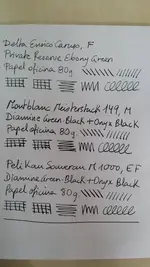 Delta Enrico Caruso, F
Private Reserve Ebony Green
Papel oficina 80g
Montblanc Meisterstück 149, M
Diamine Green-Black + Onyx Black
Papel oficina 80g
Pelikan Souverän M1000, EF
Diamine Green-Black + Onyx Black
Papel oficina 80g